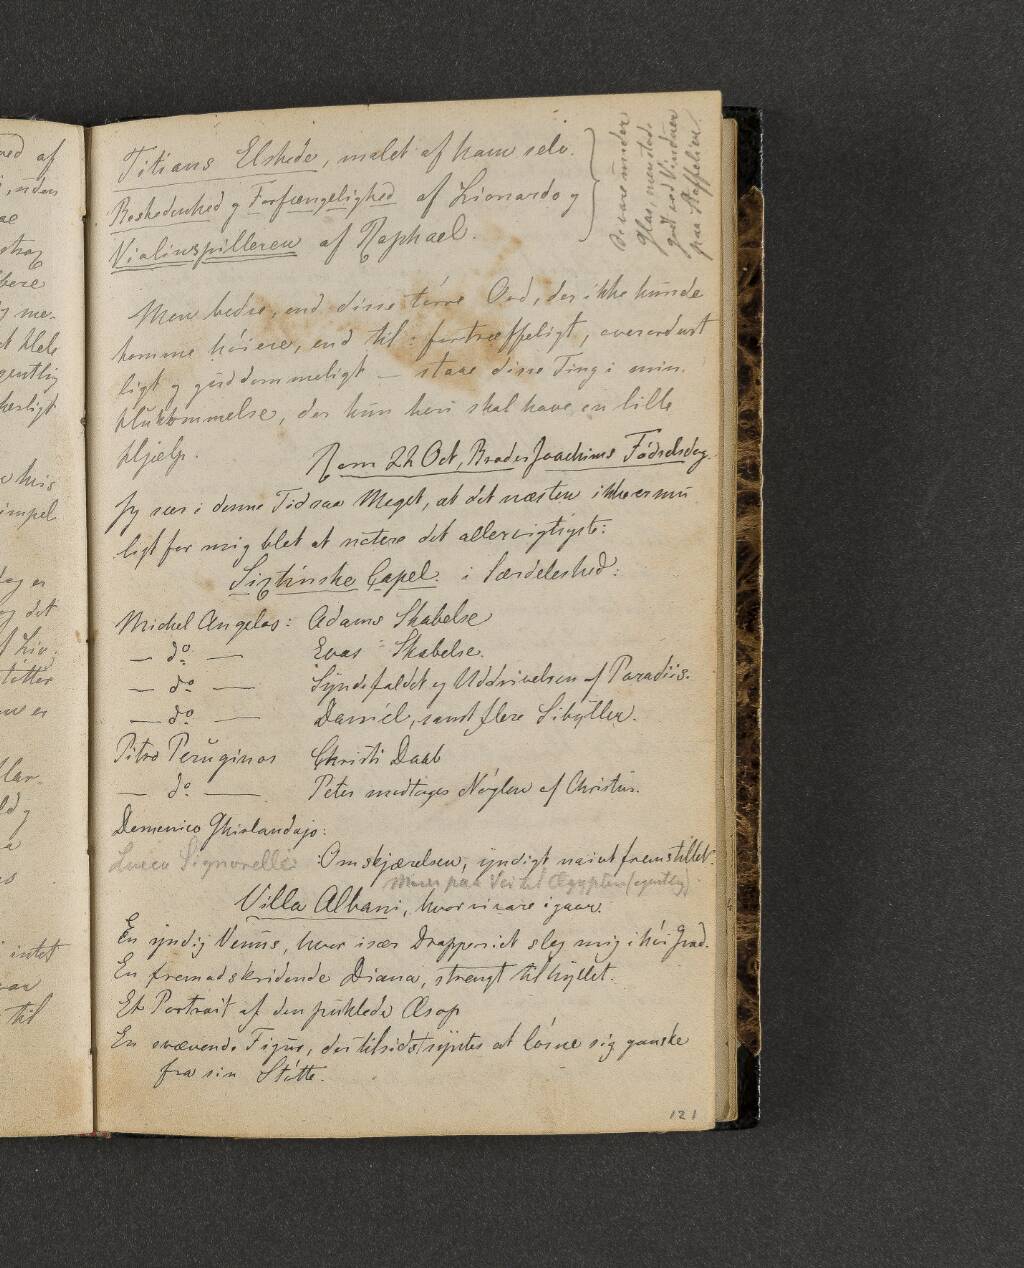 Titians Elskede, malet af ham selv.
Beskedenhed og Forfængelighed af Lionardo og
Violinspilleren af Raphael.
De vare under
Glas, men stode
god ved Vinduer
paa Staffelien.
Men bedre, end disse tørre Ord, der ikke kunde
komme høiere, end til: fortræffeligt, overordent
ligt og guddommeligt — staae disse Ting i min
Hukommelse, der kun heri skal have en lille
Hjælp.
Rom 22 Oct, Broder Joachims Fødselsdag.
Jeg saae i denne Tid saa Meget, at det næsten ikke er mu
ligt for mig blot at notere det allervigtigste:
Sixtinske Capel. i Særdeleshed:
Michel Angelos: Adams Skabelse
— do — Evas Skabelse.
— do — Syndefaldet og Uddrivelsen af Paradiis.
— do — Daniel, samt flere Sibyller.
Pitro Peruginos Christi Daab
— do — Peter modtager Nøglen af Christus.
Domenico Ghirlandajo:
Lucca Signorelli: Omskjærelsen, yndigt naivt fremstillet.
Moses paa Vei til Ægypten (egentlig)
Villa Albani, hvor vi vare igaar.
En yndig Venus, hvor især Drapperiet slog mig i høi Grad.
En fremadskridende Diana, strengt tilhyllet.
Et Portrait af den puklede Æsop
En svævende Figur, der tilsidst syntes at løsne sig ganske
fra sin Støtte.
121
af
uden
strax
bere
me-
Hele
gentlig
herligt
his
impel
og det
intet
til